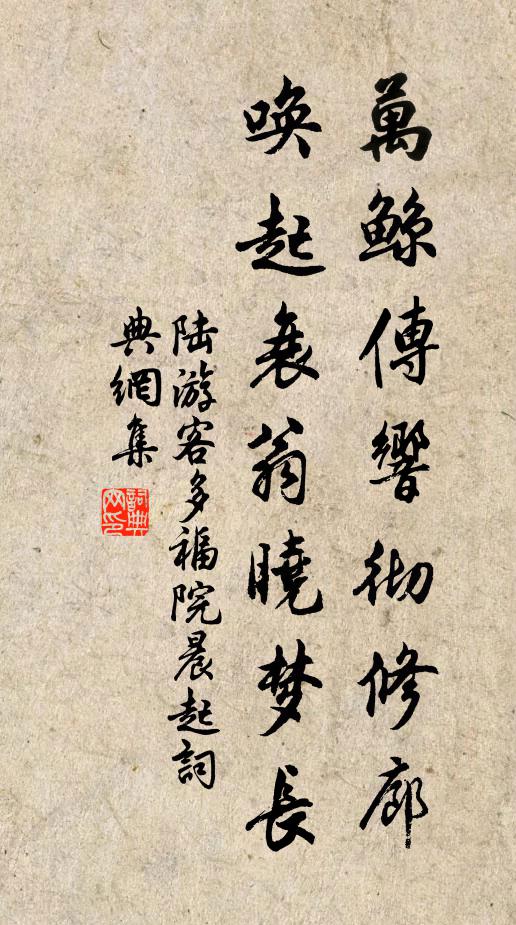 萬鯨傳響徹修廊
喚起衰翁曉梦長
陆游客多福院晨起詞
典網集
詞典网印